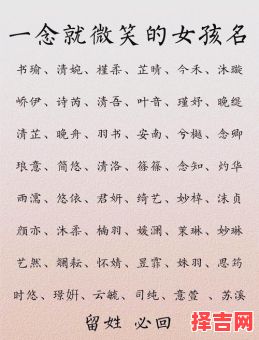 一念就微笑的女孩名
书瑜、清婉、槿柔、芷晴、今禾、沐璇
峤伊、诗芮、清吾、叶音、瑾妤、晚缇
清芷、晚舟、羽书、安南、兮樾、念卿
琅意、简悠、清洛、篠篠、念知、灼华
雨濡、悠依、君妍、绮艺、妙梓、洙贞
颜亦、沐柔、楠羽、媛澜、茉琳、妙琳
艺然、斓耘、怀婧、昱霏、姝羽、思筠
时悠、璟妍、云毓、司纯、意萱、苏溪
留姓 必回
择吉网